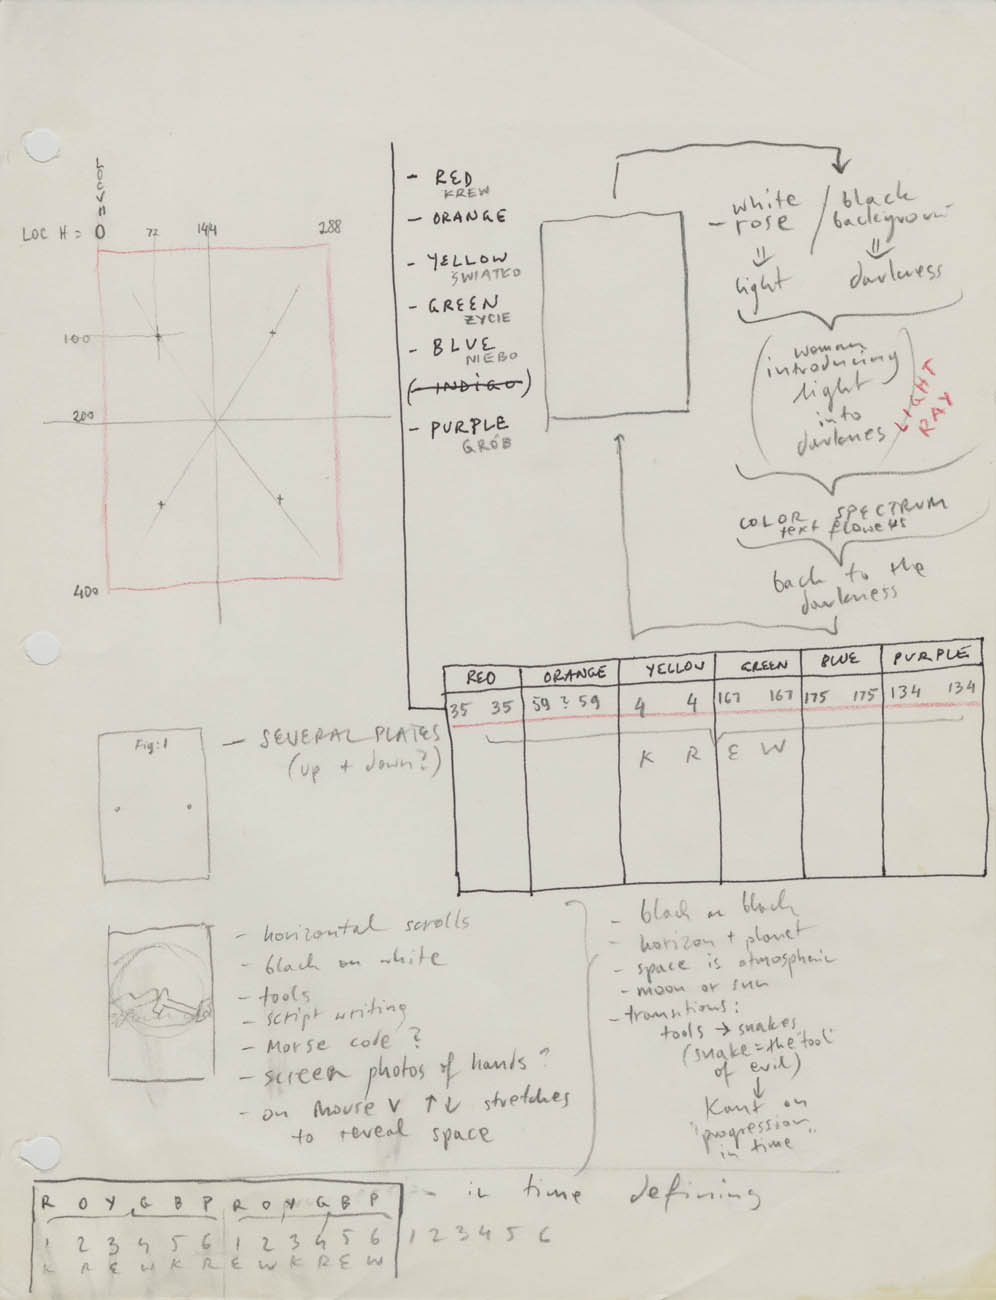 LOC H = 0
72
144
288
100
200
400
- RED
KREW
- ORANGE
- YELLOW
ŚWIATŁO
- GREEN
ŻYCIE
- BLUE
NIEBO
( - INDIGO )
- PURPLE
GRÓB
- white rose / black background
light
darkness
(woman
introducing
light
into
darknes)
LIGHT
RAY
COLOR SPECTRUM
text flowers
back to the
darkness
RED ORANGE YELLOW GREEN BLUE PURPLE
35 35 59 ? 59 4 4 167 167 175 175 134 134
K R E W
Fig: 1
- SEVERAL PLATES
(up + down?)
- horizontal scrolls
- black on white
- tools
- script writing
- Morse code ?
- screen photos of hands ?
- on Mouse V ↑↓ stretches
to reveal space
- black on black
- horizon + planet
- space is atmospheric
- moon or sun
- transitions:
tools → snakes
(snake = the "tool"
of evil)
Kant on
"progression
in time"
R O Y G B P R O Y G B P
1 2 3 4 5 6 1 2 3 4 5 6 1 2 3 4 5 6
K R E W K R E W K R E W
- in time defining